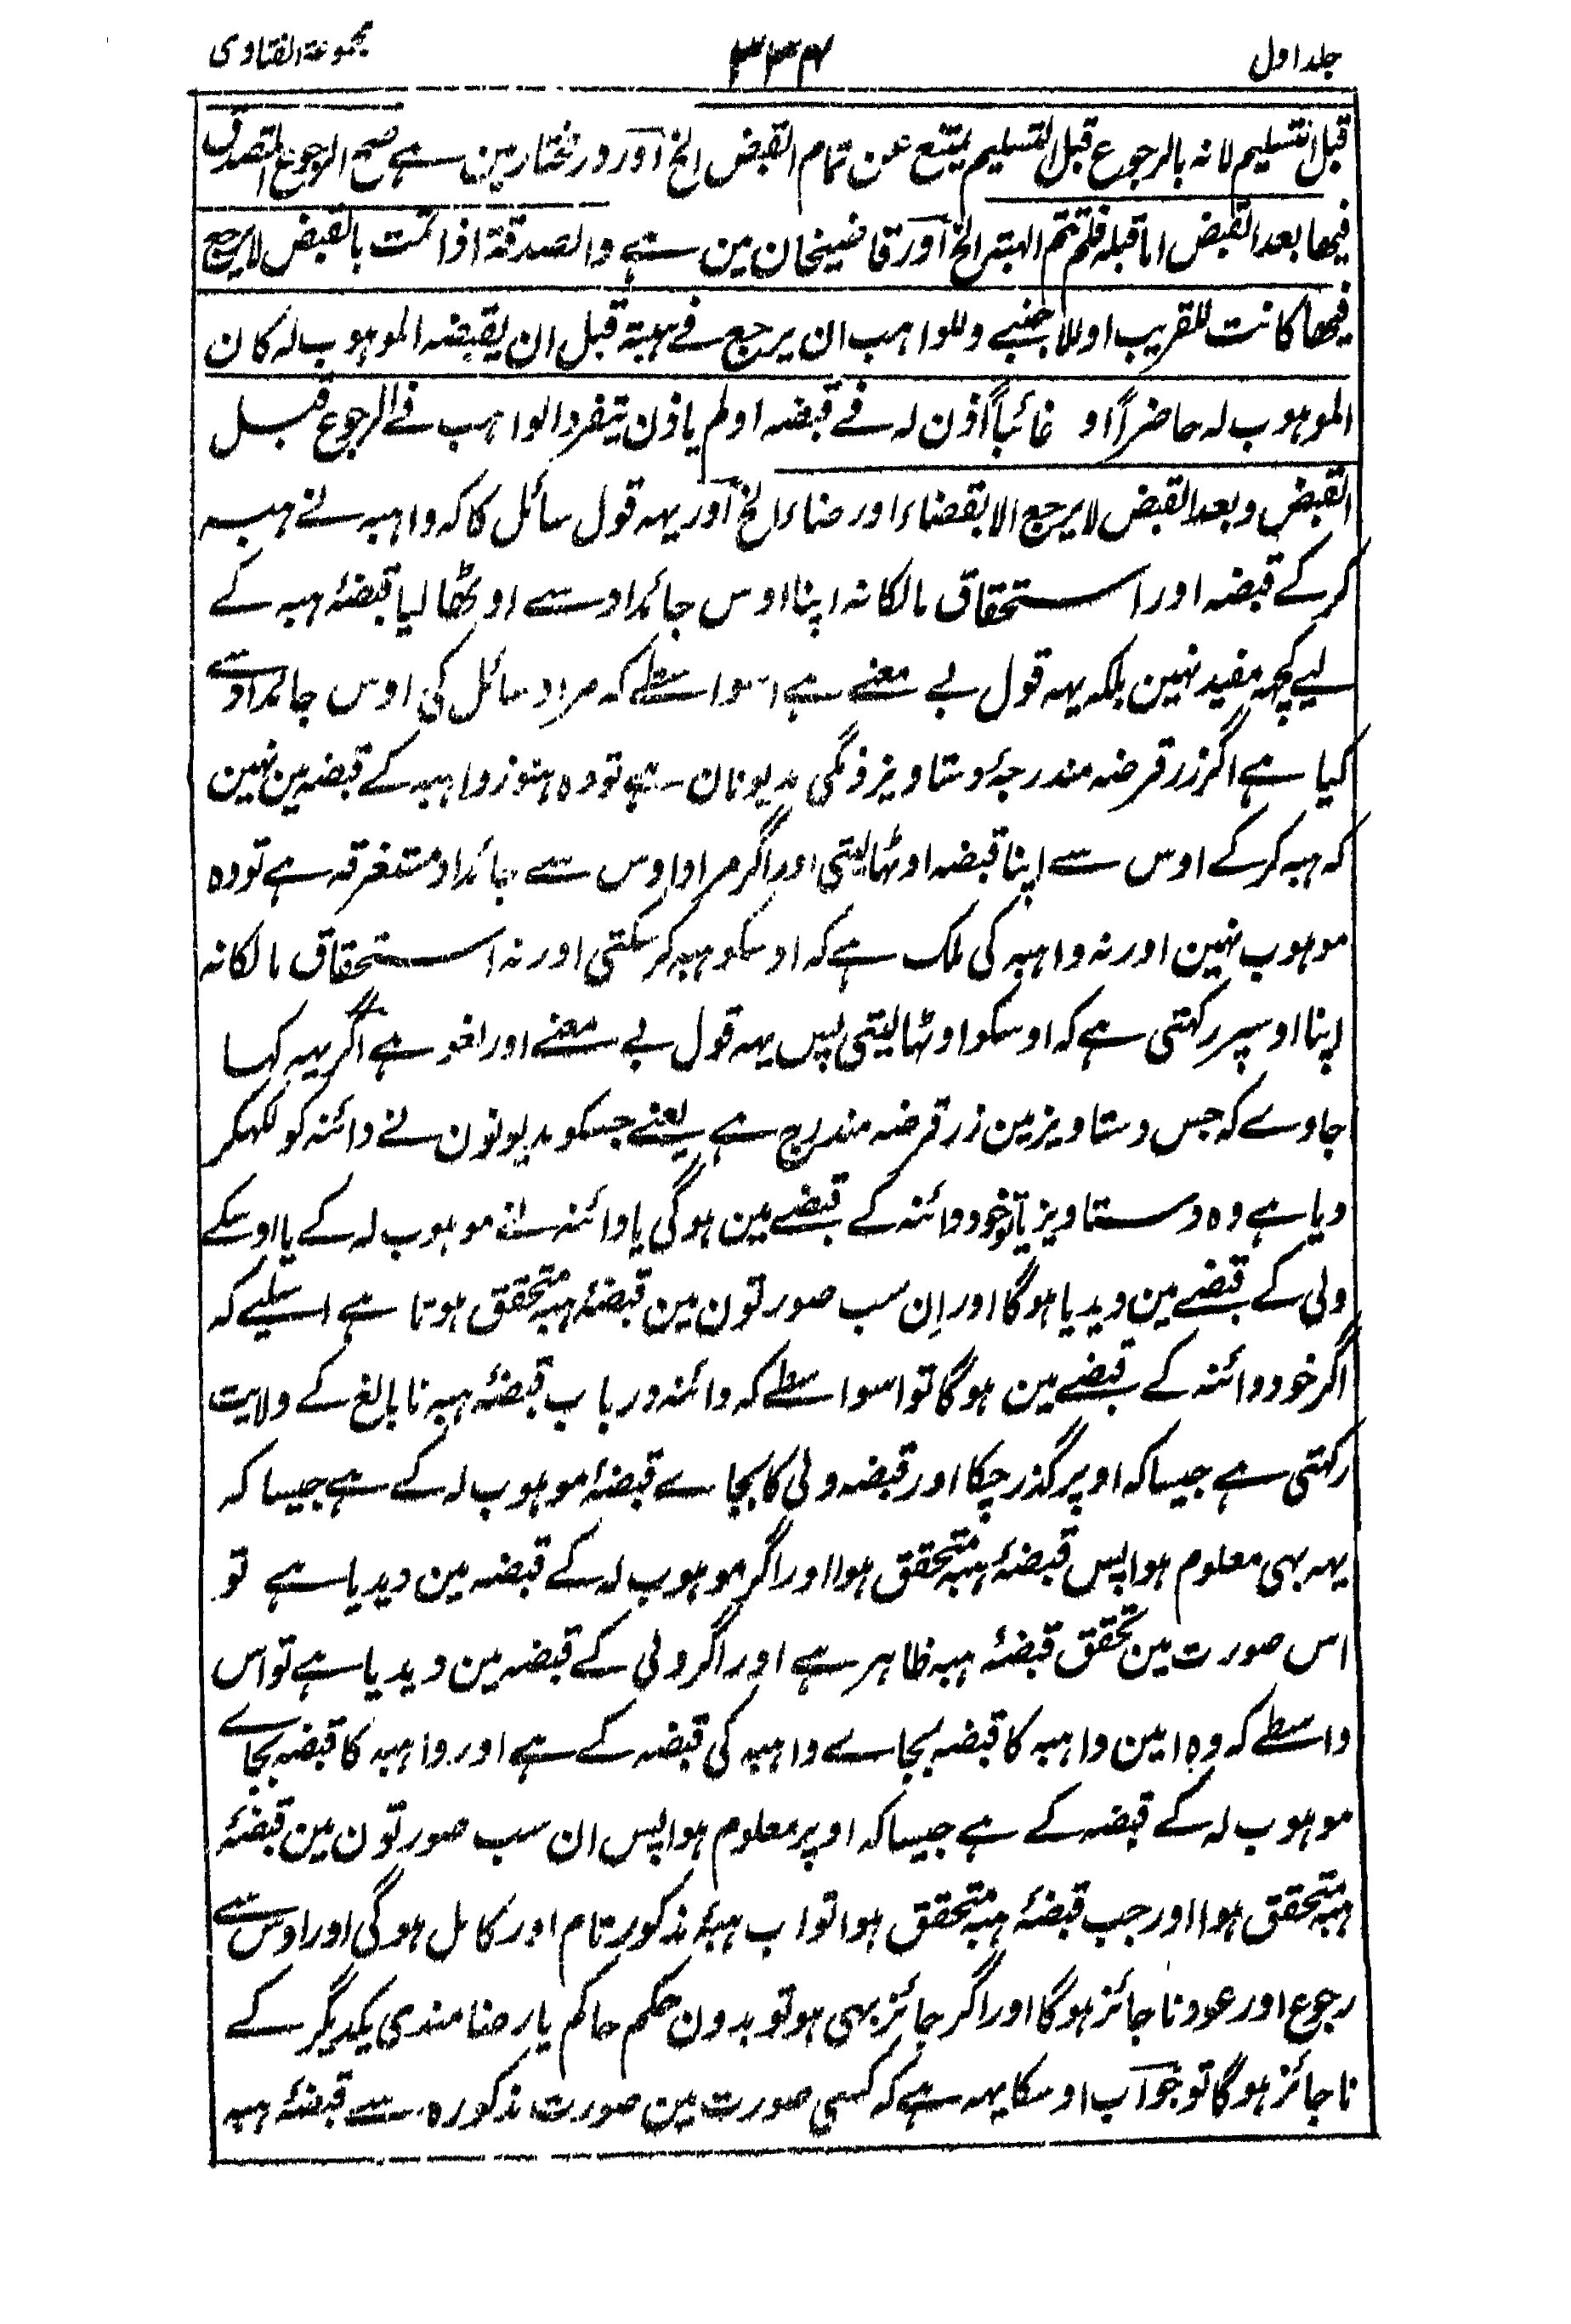 جلد اول
۳۳۴
مجموعۃ الفتاوی
قبل التسلیم لانہ بالرجوع قبل التسلیم یمتنع عن تمام القبض الخ اور در مختار مین ہے صح الرجوع
فیہا بعد القبض اما قبلہ فلم تتم الہبۃ الخ اور قاضیخان مین ہے والصدقۃ اذا تمت بالقبض لا یرجع
فیہا کانت للقریب او للاجنبے وللواہب ان یرجع فے ہبۃ قبل ان یقبضہ الموہوب لہ کان
الموہوب لہ حاضراً او غائباً اذن لہ فے قبضہ او لم یاذن یتفرد الواہب فے الرجوع قبل
القبض وبعد القبض لا یرجع الا بقضاء اور ضاء الخ اور یہہ قول سائل کا کہ واہبہ نے ہبہ
کر کے قبضہ اور استحقاق مالکانہ اپنا اوس جائداد سے اوٹھا لیا قبضۂ ہبہ کے
لیے کچھ مفید نہین بلکہ یہہ قول بے معنے ہے اسواسطے کہ مراد سائل کی اوس جائداد سے
کیا ہے اگر زر قرضہ مندرجۂ دستاویز ذمگی مدیونان ہے تو وہ ہنوز واہبہ کے قبضہ مین نہین
کہ ہبہ کر کے اوس سے اپنا قبضہ اوٹھا لیتی اور اگر مراد اوس سے جائداد متفرقہ ہے تو وہ
موہوب نہین اور نہ واہبہ کی ملک ہے کہ اوسکو ہبہ کر سکتی اور نہ استحقاق مالکانہ
اپنا اوسپر رکہتی ہے کہ اوسکو اوٹھا لیتی پس یہہ قول بے معنے اور لغو ہے اگر یہہ کہا
جاوے کہ جس دستاویز مین زر قرضہ مندرج ہے یعنے جسکو مدیونون نے دائنہ کو لکہکر
دیا ہے وہ دستاویز یا تو خود دائنہ کے قبضے مین ہو گی یا دائنہ نے موہوب لہ کے یا اوسکے
ولی کے قبضے مین دیدیا ہو گا اور اِن سب صورتون مین قبضۂ ہبہ متحقق ہوتا ہے اسلیے کہ
اگر خود دائنہ کے قبضے مین ہو گا تو اسواسطے کہ دائنہ در باب قبضۂ ہبہ نابالغ کے ولایت
رکہتی ہے جیسا کہ اوپر گذر چکا اور قبضہ ولی کا بجاے قبضۂ موہوب لہ کے ہے جیسا کہ
یہہ بہی معلوم ہوا پس قبضۂ ہبہ متحقق ہوا اور اگر موہوب لہ کے قبضہ مین دیدیا ہے تو
اس صورت مین تحقق قبضۂ ہبہ ظاہر ہے اور اگر ولی کے قبضہ مین دیدیا ہے تو اس
واسطے کہ وہ امین واہبہ کا قبضہ بجاے واہبہ کی قبضہ کے ہے اور واہبہ کا قبضہ بجاے
موہوب لہ کے قبضہ کے ہے جیسا کہ اوپر معلوم ہوا پس ان سب صورتون مین قبضۂ
ہبہ متحقق ہوا اور جب قبضۂ ہبہ متحقق ہوا تو اب ہبۂ مذکور تام اور کامل ہو گی اور اوس سے
رجوع اور عود ناجائز ہو گا اور اگر جائز بہی ہو تو بدون حکم حاکم یا رضامندی یکدیگر کے
ناجائز ہو گا تو جواب اوسکا یہہ ہے کہ کسی صورت مین صورت مذکورہ سے قبضۂ ہبہ